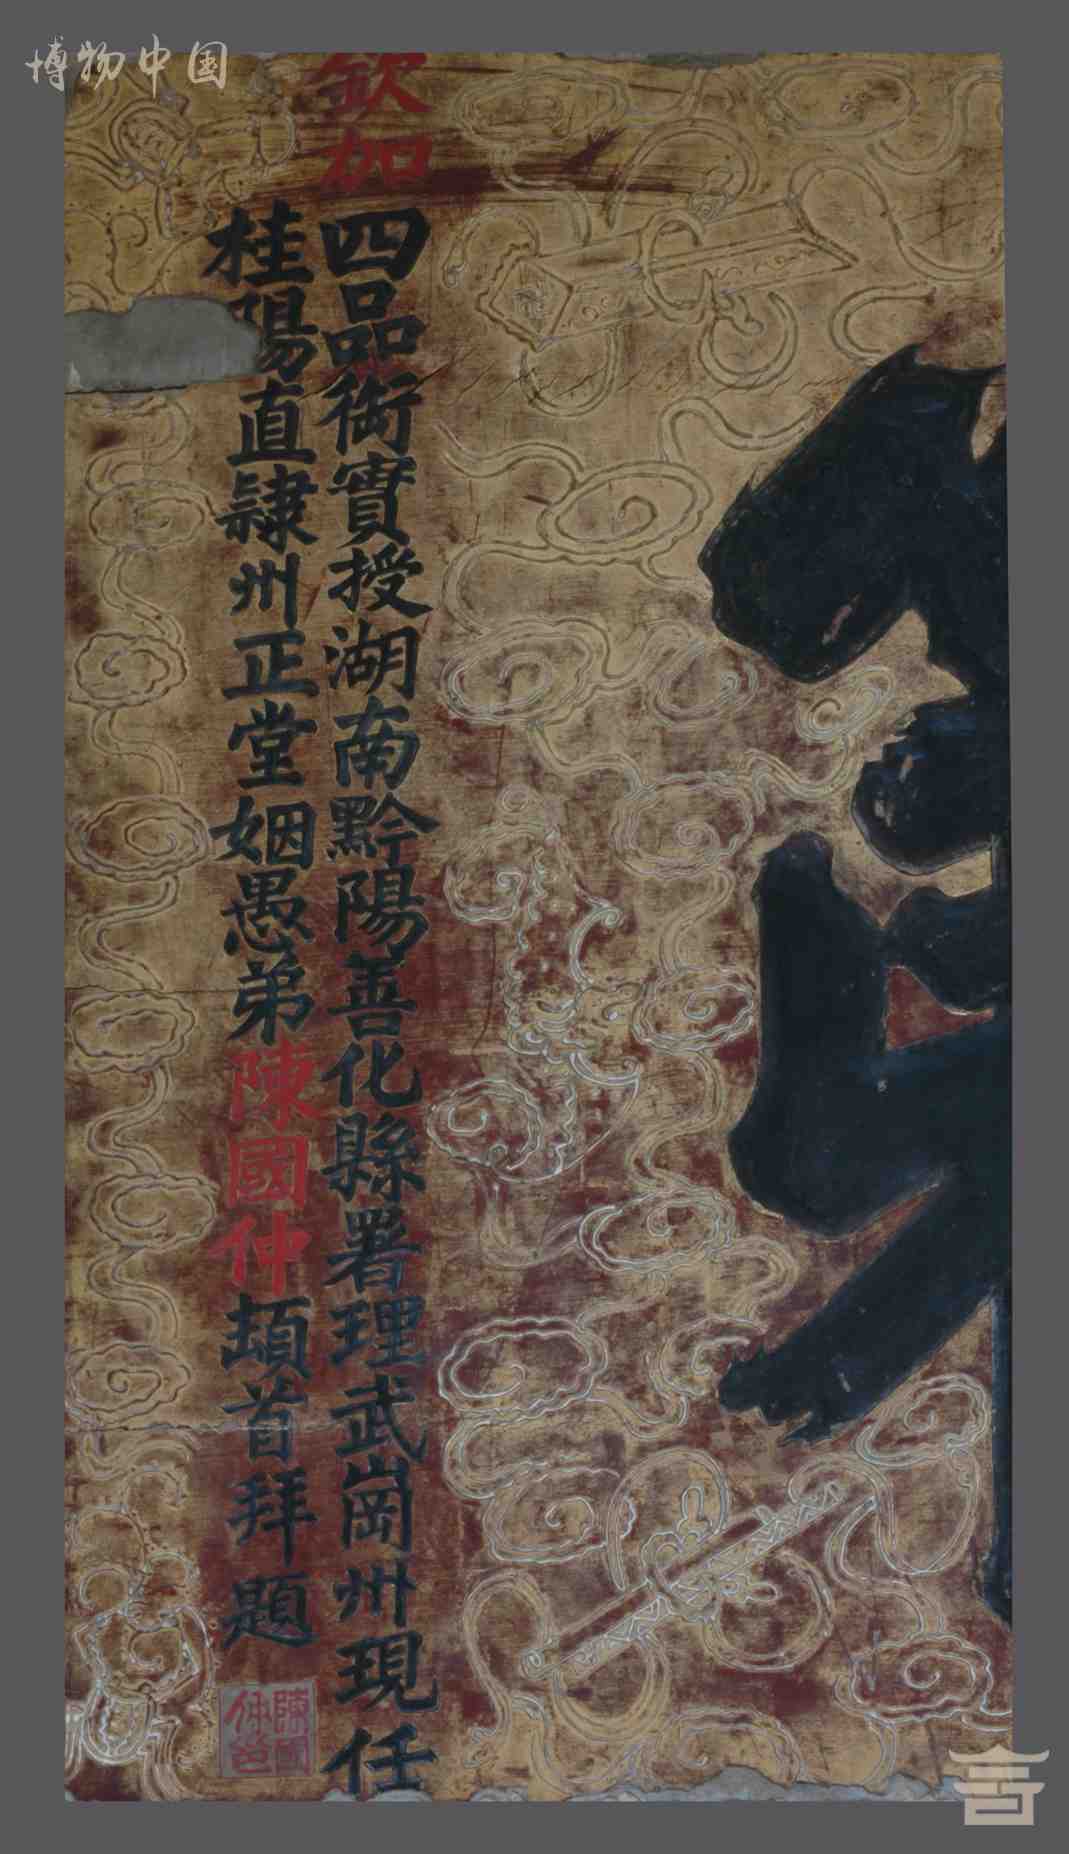 博物中国
欽加
四品衔實授湖南黔陽善化縣署理武崗州現任
桂陽直隷州正堂姻愚弟陳國仲頡首拜題
陳國
仲